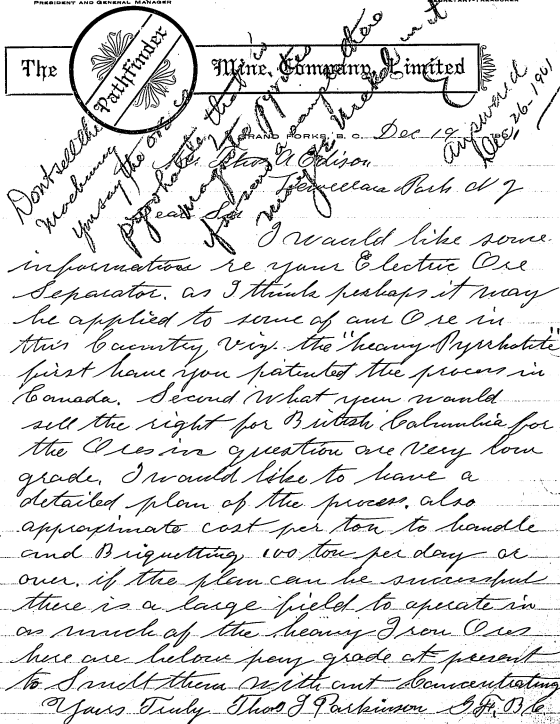 PRESIDENT AND GENERAL MANAGER
SECRETARY-TREASURER
The Pathfinder Mine Company Limited
GRAND FORKS, B. C. Dec 19
answered
Dec 26-1901
Dont sell the
machinery
you say the ore is
pyrrhotite that is
magnetic pyrites
if you send a sample
Thos A Edison
Park N J
Dear Sir
I would like some
information re your Electric Ore
Separator. as I think perhaps it may
be applied to some of our Ore in
this Country viz. the "heavy Pyrrhotite"
first have you patented the process in
Canada. Second what your would
sell the right for British Columbia for
the Ores in question are very low
grade. I would like to have a
detailed plan of the process. also
approximate cost per ton to handle
and Briquetting 100 ton per day or
over. if the plan can be successful
there is a large field to operate in
as much of the heavy Iron Ores
here are below pay grade at present
to Smelt them without Concentrating
Yours Truly Thos J Parkinson G.F. B.C.